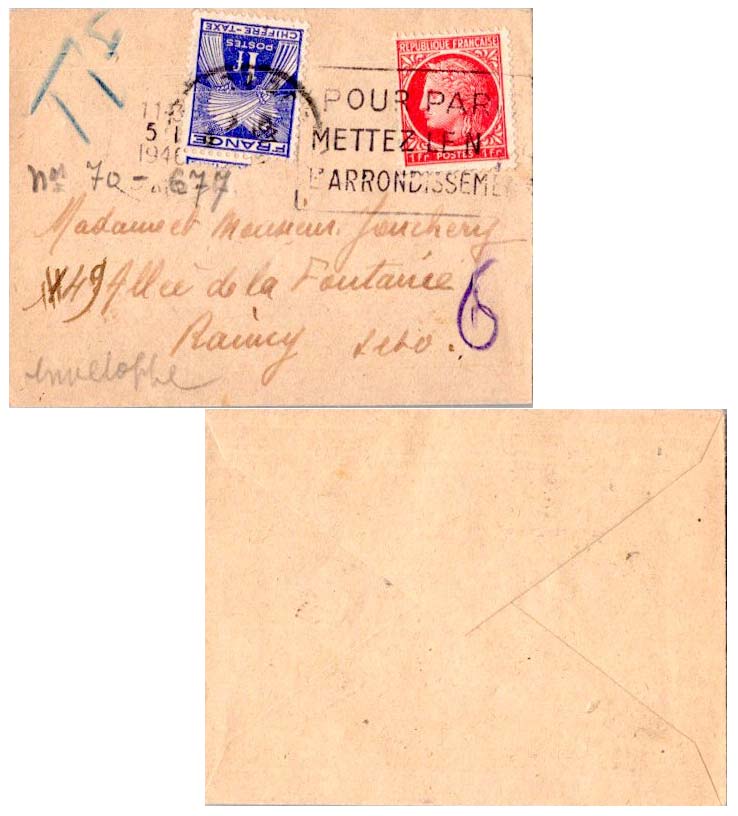 T 1f
CHIFFRE-TAXE
POSTES
1F
FRANCE
REPUBLIQUE FRANÇAISE
1Fr POSTES 1Fr
5 1
1946
POUR PAR
METTEZ LE N
L'ARRONDISSEME
Nos 70 - 677
Madame et Monsieur Jonchery
49 Allée de la Fontaine
Raincy S et O.
6
enveloppe